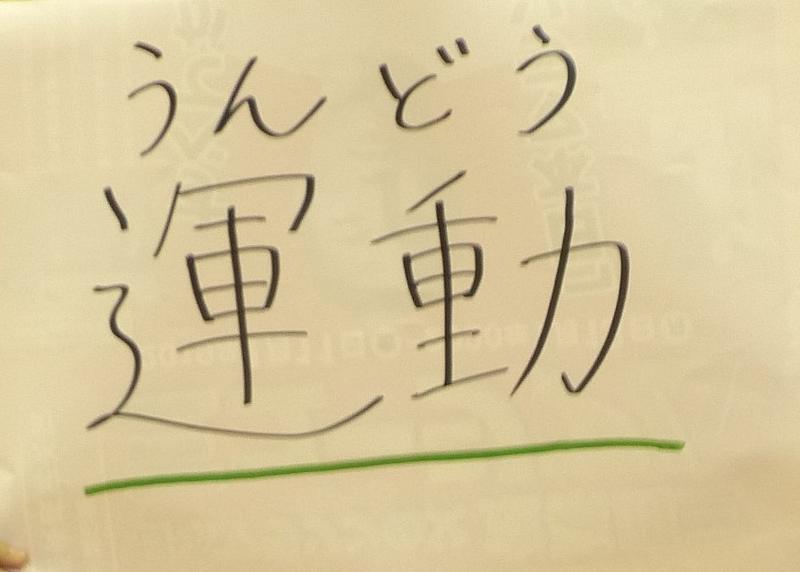 うんどう
運動